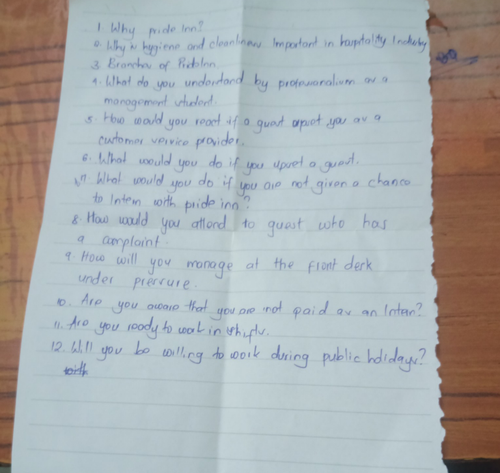 1. Why pride Inn?
2. Why is hygiene and cleanliness Important in hospitality Industry
3. Branches of PrideInn.
4. What do you understand by professionalism as a
management student.
5. How would you react if a guest upset you as a
customer service provider.
6. What would you do if you upset a guest.
7. What would you do if you are not given a chance
to Intern with pride inn?
8. How would you attend to guest who has
a complaint.
9. How will you manage at the front desk
under pressure.
10. Are you aware that you are not paid as an Intern?
11. Are you ready to work in shifts.
12. Will you be willing to work during public holidays?